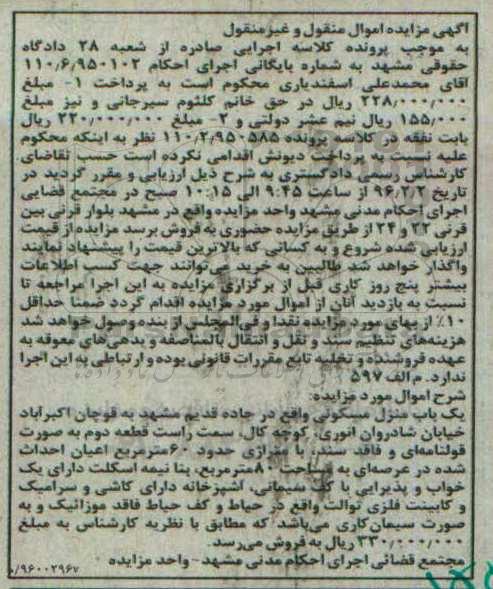 آگهی مزایده اموال منقول و غیرمنقول
به موجب پرونده کلاسه اجرایی صادره از شعبه ۲۸ دادگاه
حقوقی مشهد به شماره بایگانی اجرای احکام ۱۱۰/۶/۹۵۰۱۰۲
آقای محمدعلی اسفندیاری محکوم است به پرداخت ۱- مبلغ
۲۲۸/۰۰۰/۰۰۰ ریال در حق خانم کلثوم سیرجانی و نیز مبلغ
۱۵۵/۰۰۰ ریال نیم عشر دولتی و ۲- مبلغ ۲۲۰/۰۰۰/۰۰۰ ریال
بابت نفقه در کلاسه پرونده ۱۱۰/۲/۹۵۰۵۸۵ نظر به اینکه محکوم
علیه نسبت به پرداخت دیونش اقدامی نکرده است حسب تقاضای
کارشناس رسمی دادگستری به شرح ذیل ارزیابی و مقرر گردید در
تاریخ ۹۶/۲/۲ از ساعت ۹:۴۵ الی ۱۰:۱۵ صبح در مجتمع قضایی
اجرای احکام مدنی مشهد واحد مزایده واقع در مشهد بلوار قرنی بین
قرنی ۲۲ و ۲۴ از طریق مزایده حضوری به فروش برسد مزایده از قیمت
ارزیابی شده شروع و به کسانی که بالاترین قیمت را پیشنهاد نمایند
واگذار خواهد شد طالبین به خرید می‌توانند جهت کسب اطلاعات
بیشتر پنج روز کاری قبل از برگزاری مزایده به این اجرا مراجعه تا
نسبت به بازدید آنان از اموال مورد مزایده اقدام گردد ضمنا حداقل
۱۰٪ از بهای مورد مزایده نقدا و فی‌المجلس از بنده وصول خواهد شد
هزینه‌های تنظیم سند و نقل و انتقال بالمناصفه و بدهی‌های معوقه به
عهده فروشنده و تخلیه تابع مقررات قانونی بوده و ارتباطی به این اجرا
ندارد. م الف ۵۹۷
شرح اموال مورد مزایده:
یک باب منزل مسکونی واقع در جاده قدیم مشهد به قوچان اکبرآباد
خیابان شادروان انوری، کوچه کال، سمت راست قطعه دوم به صورت
قولنامه‌ای و فاقد سند، با متراژی حدود ۶۰مترمربع اعیان احداث
شده در عرصه‌ای به مساحت ۸۰مترمربع، بنا نیمه اسکلت دارای یک
خواب و پذیرایی با کف سیمانی، آشپزخانه دارای کاشی و سرامیک
و کابینت فلزی توالت واقع در حیاط و کف حیاط فاقد موزائیک و به
صورت سیمان‌کاری می‌باشد که مطابق با نظریه کارشناس به مبلغ
۳۳۰/۰۰۰/۰۰۰ ریال به فروش می‌رسد.
مجتمع قضائی اجرای احکام مدنی مشهد - واحد مزایده
۰/۹۶۰۰۲۹۶۷